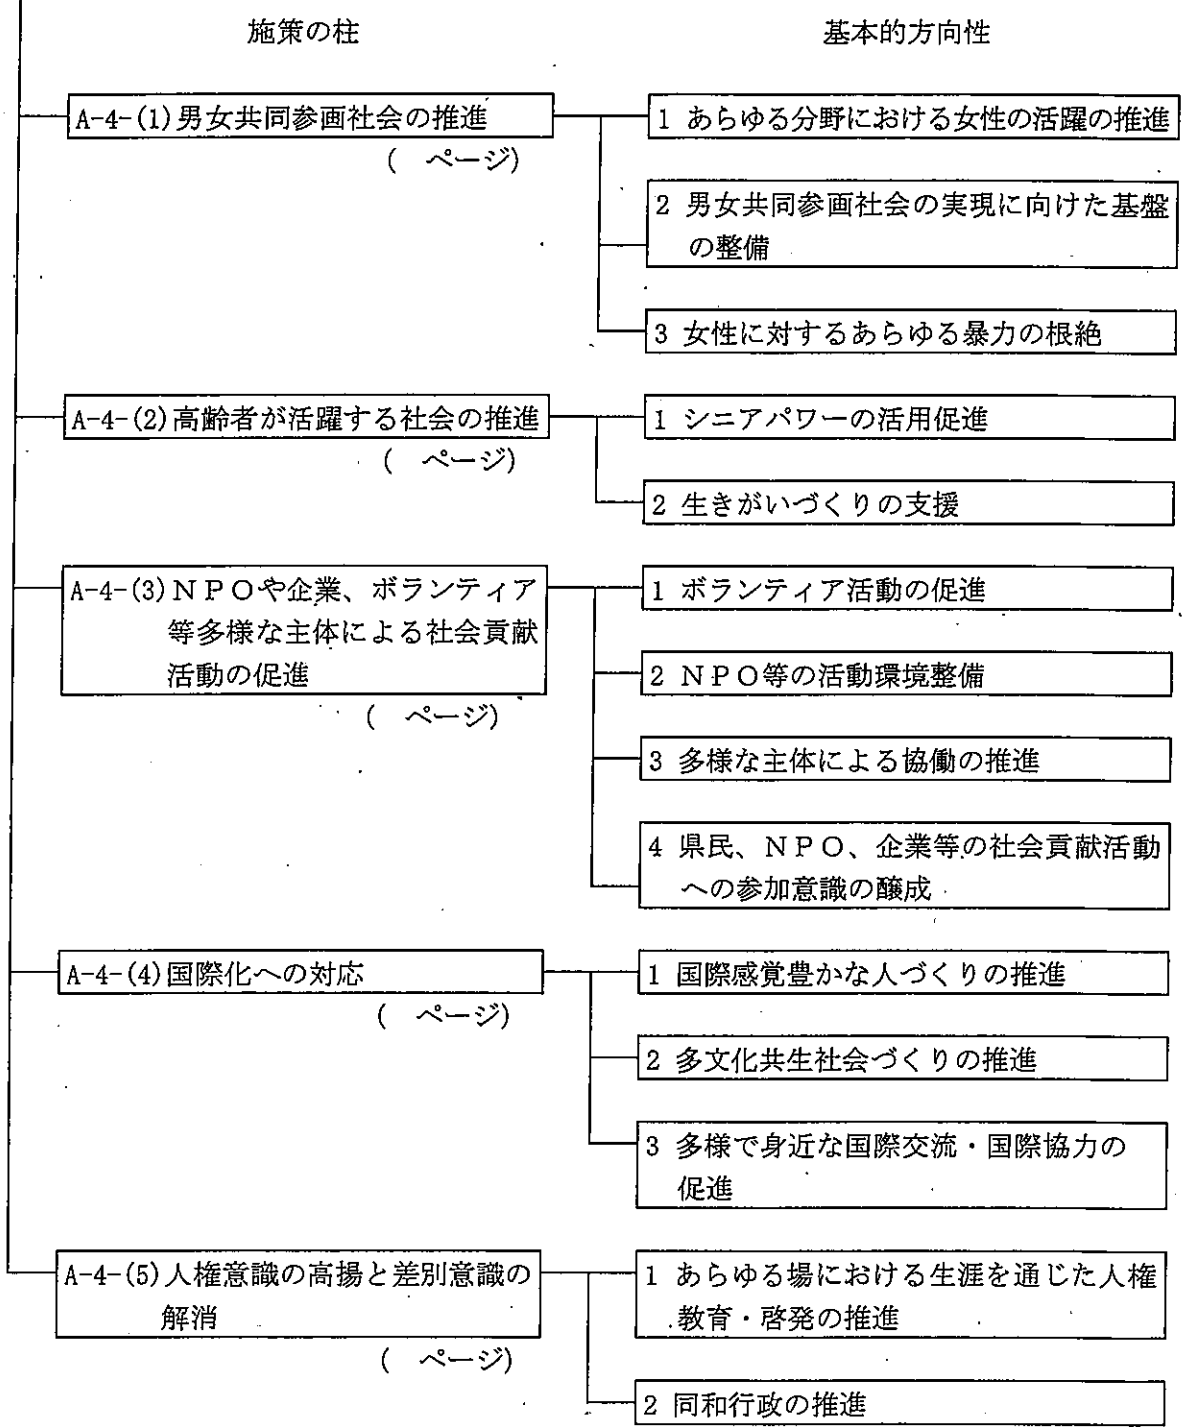 施策の柱
基本的方向性
A-4-(1)男女共同参画社会の推進
( ページ)
1 あらゆる分野における女性の活躍の推進
2 男女共同参画社会の実現に向けた基盤
の整備
3 女性に対するあらゆる暴力の根絶
A-4-(2)高齢者が活躍する社会の推進
( ページ)
1 シニアパワーの活用促進
2 生きがいづくりの支援
A-4-(3)ＮＰＯや企業、ボランティア
等多様な主体による社会貢献
活動の促進
( ページ)
1 ボランティア活動の促進
2 ＮＰＯ等の活動環境整備
3 多様な主体による協働の推進
4 県民、ＮＰＯ、企業等の社会貢献活動
への参加意識の醸成
A-4-(4)国際化への対応
( ページ)
1 国際感覚豊かな人づくりの推進
2 多文化共生社会づくりの推進
3 多様で身近な国際交流・国際協力の
促進
A-4-(5)人権意識の高揚と差別意識の
解消
( ページ)
1 あらゆる場における生涯を通じた人権
教育・啓発の推進
2 同和行政の推進